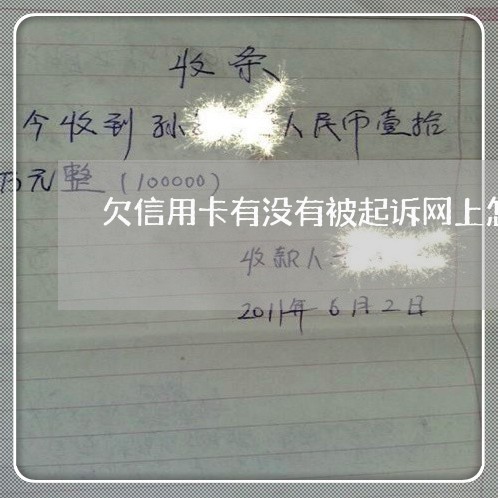 收条
今收到孙 人民币壹拾
万元整（100000）
欠信用卡有没有被起诉网上怎
收款人
2011年6月2日